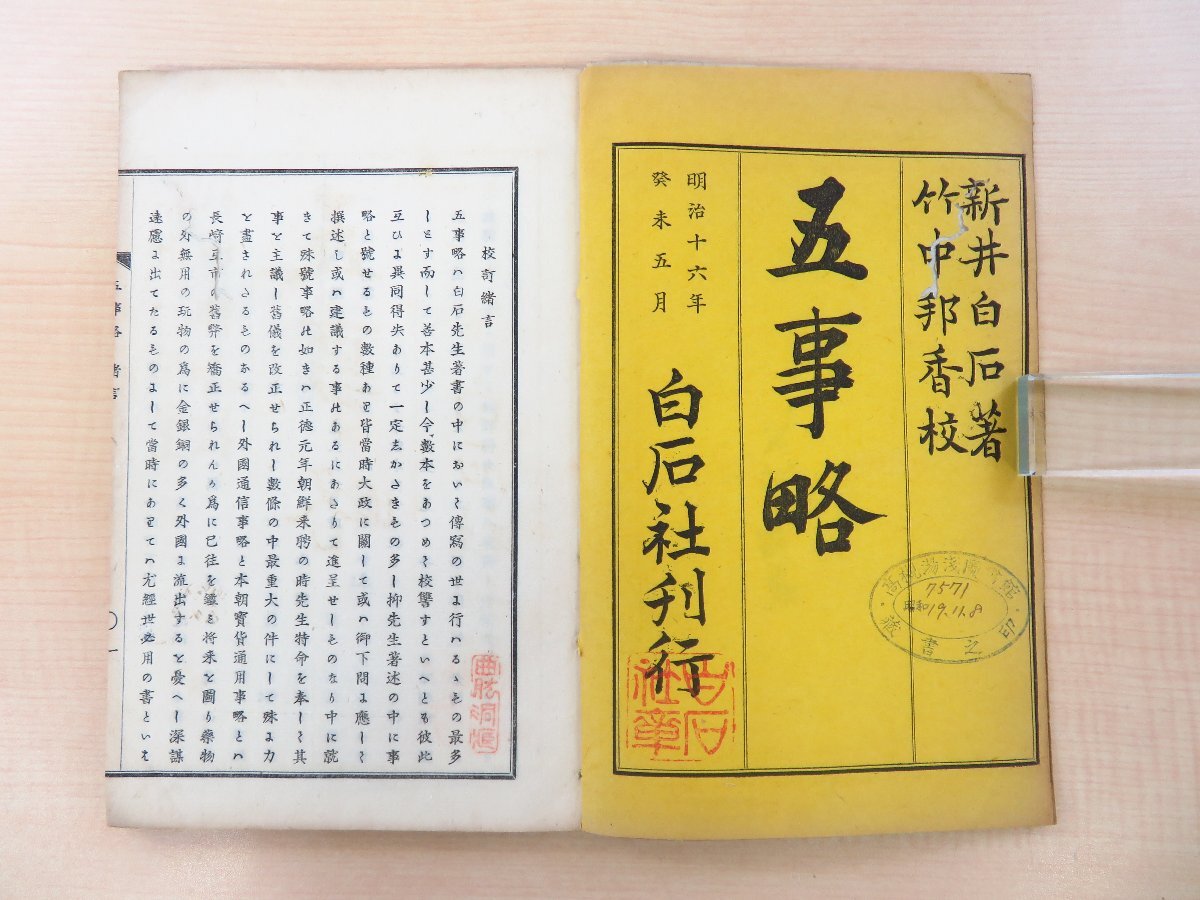 新井白石著
竹中邦香校
五事略
明治十六年
癸未五月
白石社刊行
白石社章
7571
昭和19.11.8
藏書之印
校訂緒言
五事略ハ白石先生著書の中におゐて傳寫の世に行ハるゝその最多
しとす而して善本甚少し今數本をあつめて校讐すといへとも彼此
互ひに異同得失ありて一定志かさきもの多し抑先生著述の中に事
略と號せるもの數種あり皆當時大政に關して或ハ御下問に應して
撰述し或ハ建議する事等あるにあたりて進呈せしものなり中に就
きて殊號事略の如きハ正德元年朝鮮來聘の時先生特命を奉して其
事を主議し舊儀を改正せられし數條の中最重大の件にして殊に力
を盡されたるものなるへし外國通信事略と本朝寶貨通用事略とハ
長崎互市の舊弊を矯正せられんか爲に已往を鑑と將来を圖り藥物
の外無用の玩物の爲に金銀銅の多く外國に流出するを憂へし深謀
遠慮に出てたるものにして當時にありてハ尤經世必用の書といは
五事略 緒言
一